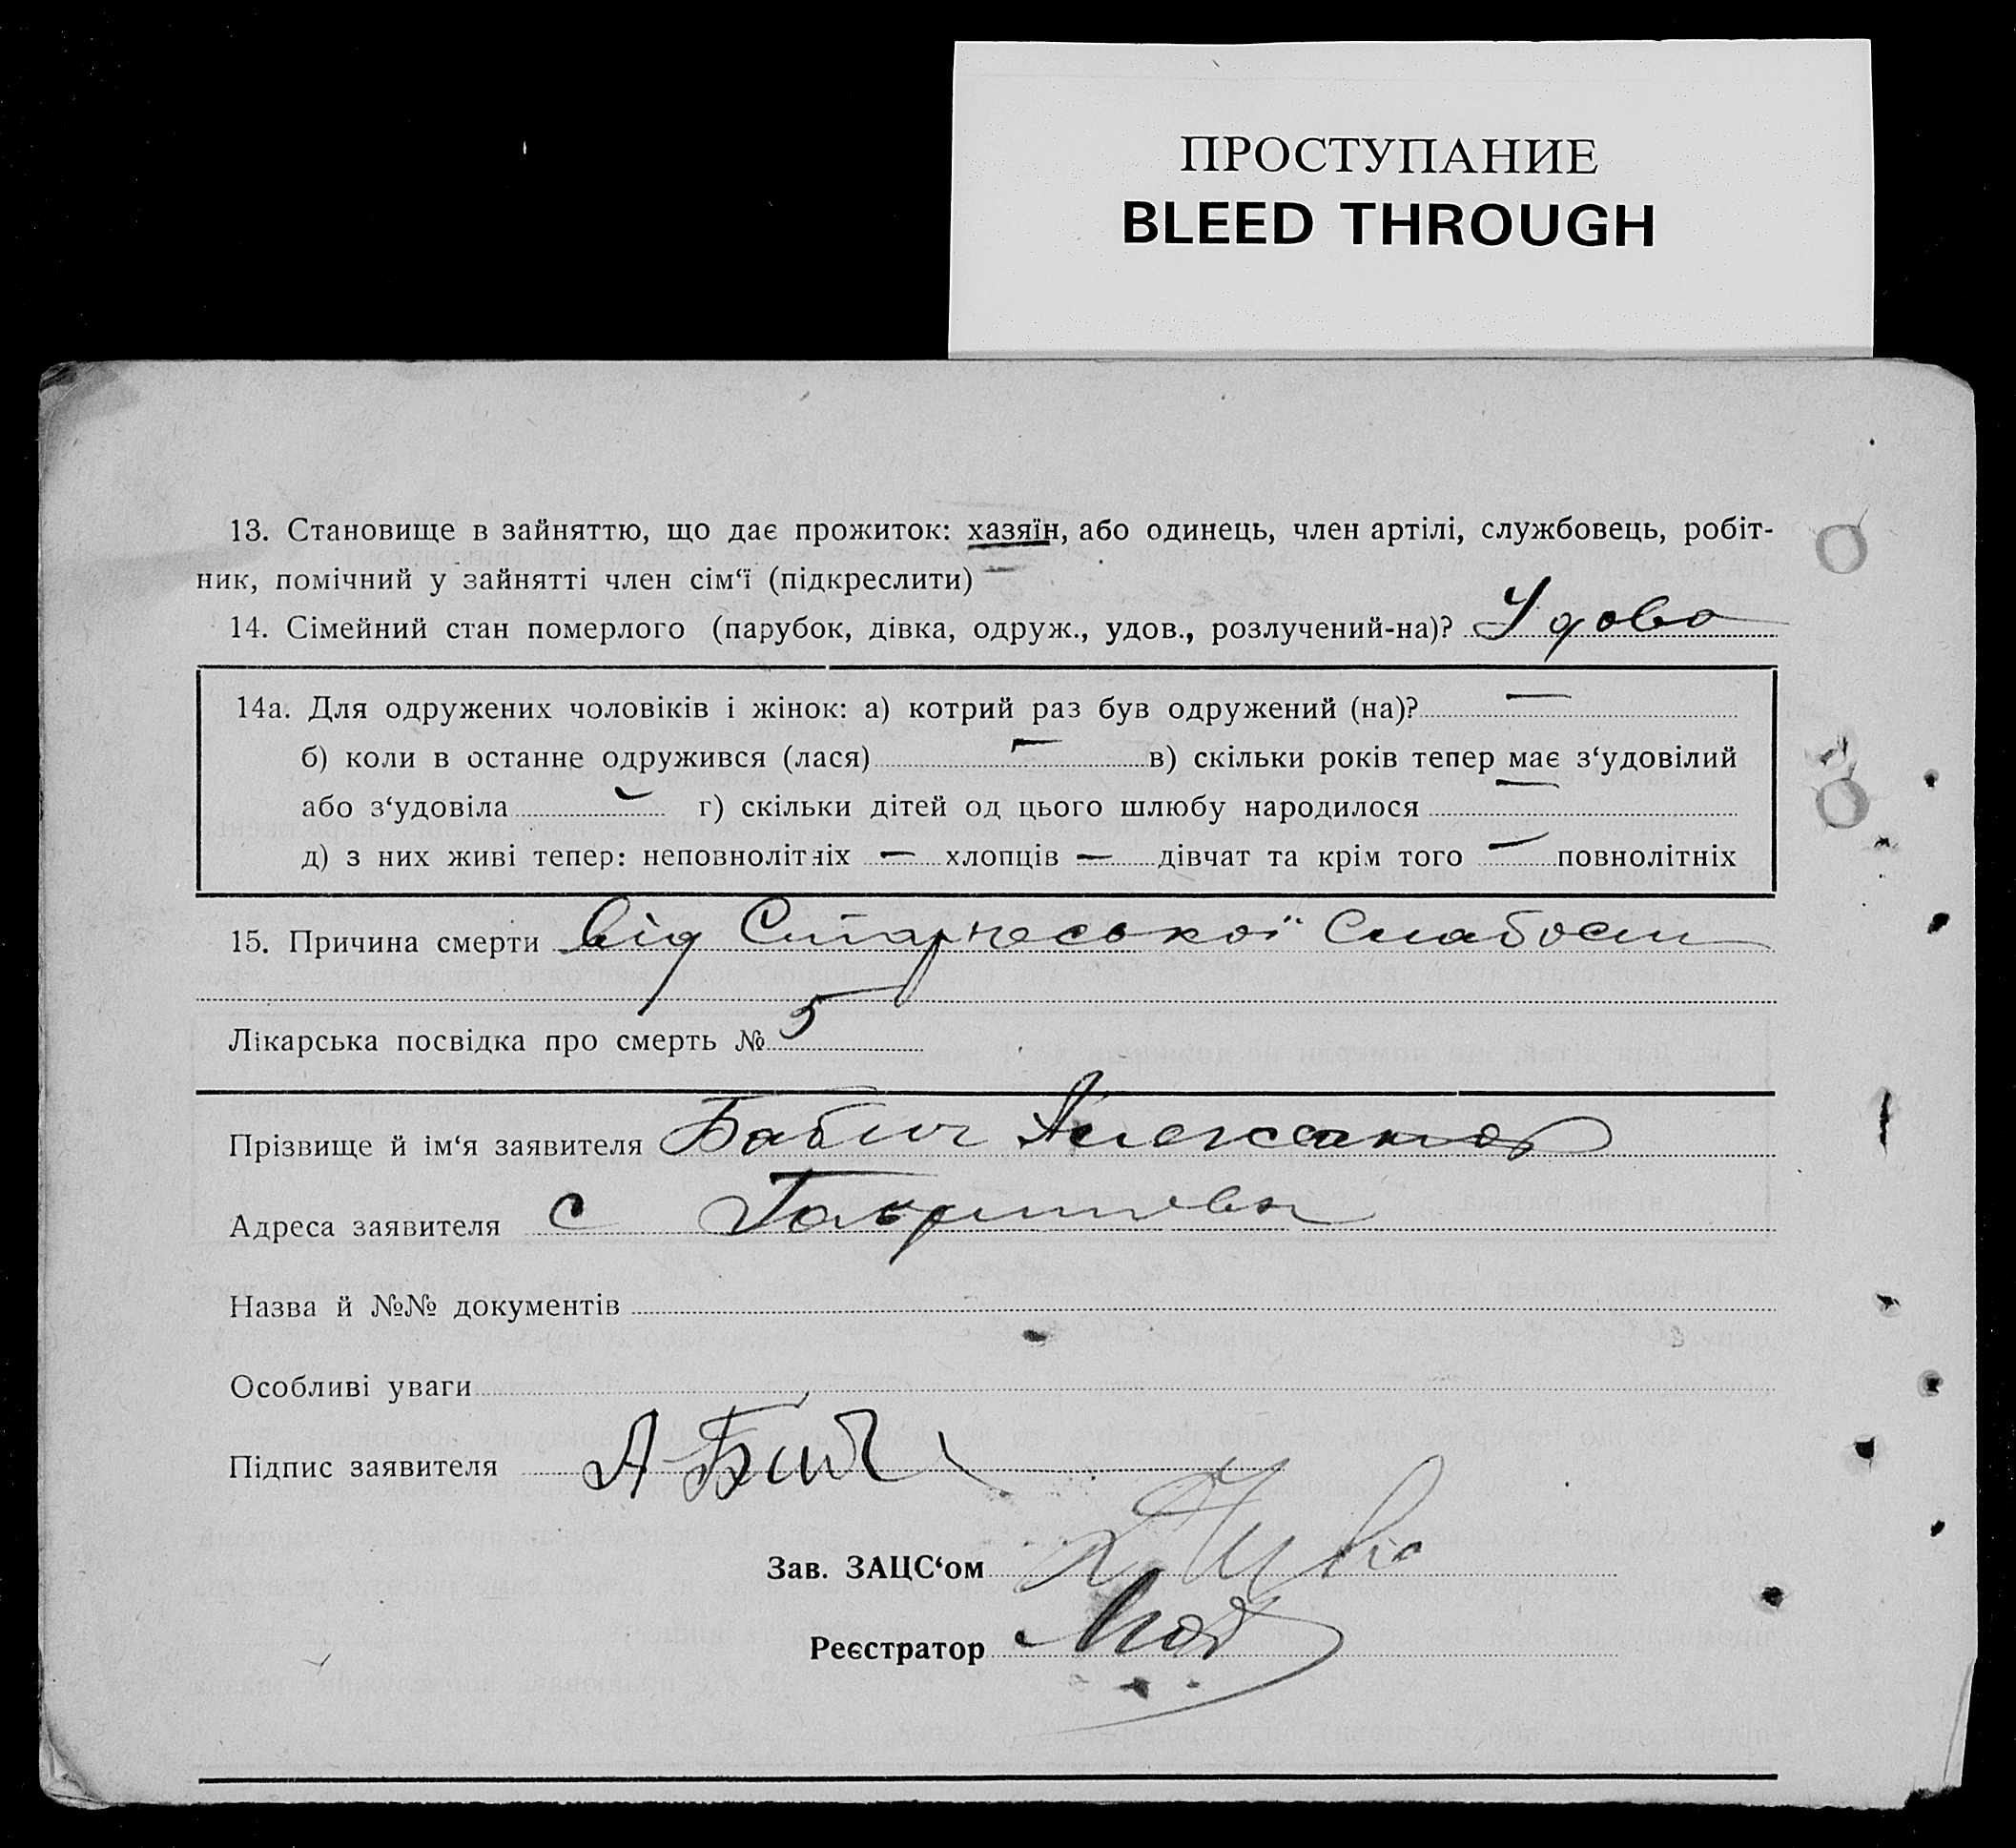 ПРОСТУПАНИЕ
BLEED THROUGH
13. Становище в зайняттю, що дає прожиток: хазяїн, або одинець, член артілі, службовець, робіт-
ник, помічний у зайнятті член сім‘ї (підкреслити) —
14. Сімейний стан померлого (парубок, дівка, одруж., удов., розлучений-на)? Удова
14а. Для одружених чоловіків і жінок: а) котрий раз був одружений (на)? —
б) коли в останне одружився (лася) — в) скільки років тепер має з‘удовілий
або з‘удовіла — г) скільки дітей од цього шлюбу народилося —
д) з них живі тепер: неповнолітніх — хлопців — дівчат та крім того — повнолітніх
15. Причина смерти від Старческої Слабости
Лікарська посвідка про смерть № 5
Прізвище й ім‘я заявителя Бабич Александр
Адреса заявителя с
Назва й №№ документів
Особливі уваги
Підпис заявителя
Зав. ЗАЦС‘ом
Реєстратор